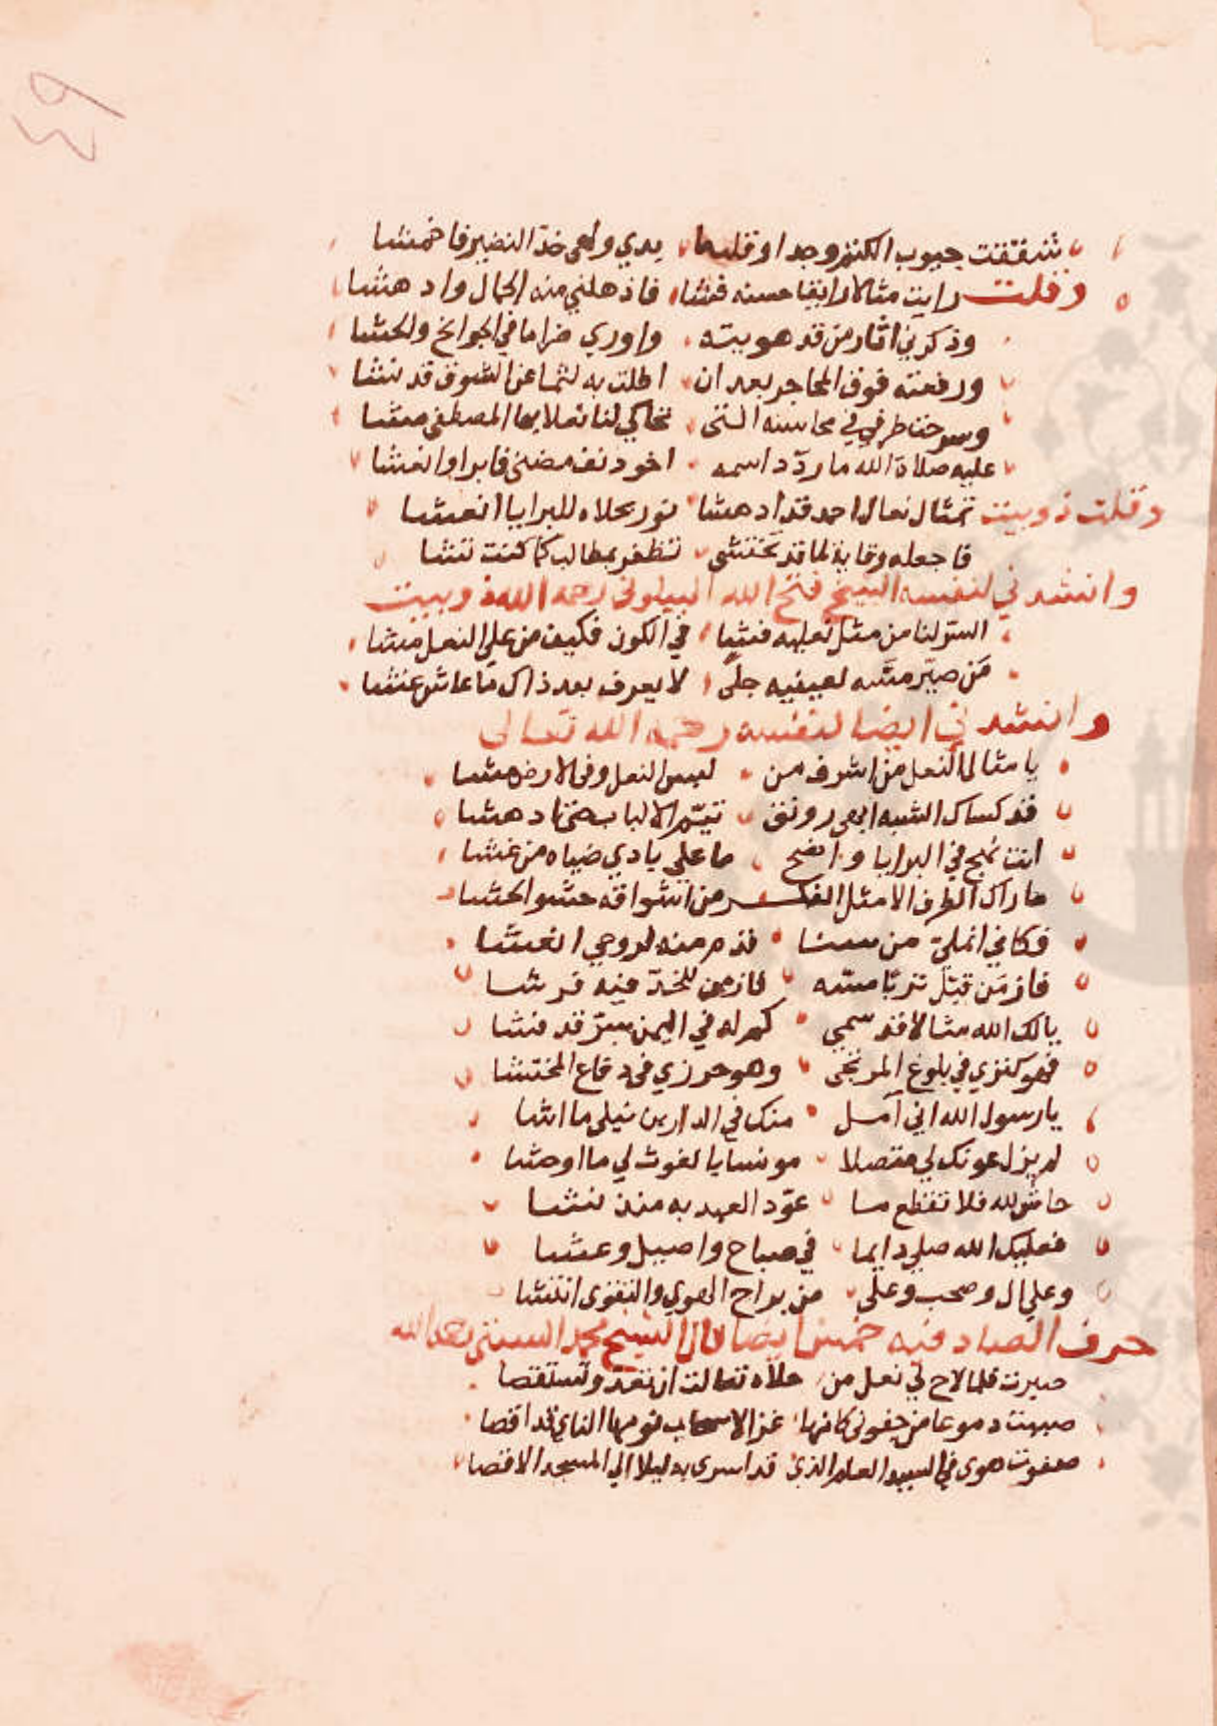 ٤٩
شققت جيوب الكنز وجدا وقلبها يدي ولهى خد النضير فاخمشا
وقلت رايت مثالا رايقا حسنه فشا فاذهلني منه الجمال وادهشا
وذكرني اثار من قد هويته واوري ضراما في الجوانح والحشا
ورفعته فوق المحاجر بعد ان اطلت به لثما عن الشوق قد نشا
وسرحت طرفي في محاسنه التي تحاكي لنا نعلا بها المصطفى مشا
عليه صلاة الله ما ردد اسمه اخو دنف مضنى فابرا وانعشا
وقلت ذوبيت تمثال نعال احمد قد ادهشا نور بحلاه للبرايا انعشا
فاجعله وقاية لما قد تختشي تظفر بمطالب كما كنت تشا
وانشدني لنفسه الشيخ فتح الله البيلوني رحمه الله ذوبيت
السر لنا من مثل نعليه فشا في الكون فكيف من على النعل مشا
من صير مشه لعينيه جلى لا يعرف بعد ذاك ما عاش عشا
وانشدني ايضا لنفسه رحمه الله تعالى
يا مثالا لنعل من اشرف من لبس النعل وفي الارض مشا
قد كساك الشبه ابهى رونق تيم الالباب حتى ادهشا
انت نهج في البرايا واضح ما على بادي ضياه من غشا
ما راك الطرف الا مثل الفكر من اشواقه حشو الحشا
فكاني انملي من سنا قدم منه لروحي انعشا
فاز من قبل تربا مسه فازمن للخد فيه فرشا
يا لك الله مثالا قد سمي كم له في اليمن سر قد فشا
فهو كنزي في بلوغ المرتجى وهو حرزي في دفاع المختشا
يا رسول الله اني آمل منك في الدارين نيلي ما اشا
لم يزل عونك لي متصلا مونسا يا لغوث لي ما اوحشا
حاش لله فلا تقطع ما عود العبد به منذ نشا
فعليك الله صلى دايما في صباح واصيل وعشا
وعلى ال وصحب وعلى من براح الهوي والتقوى انتشا
حرف الصاد فيه خمس ايضا قال الشيخ محمد السبتي رحمه الله
صبرت فلما لاح لي نعل من علاه تعالت ان تعد وتستقصا
صببت دموعا من جفوني كانها غزالا نومها الناي قد اقصا
صفوت هوى في السيد العلم الذي قد اسرى به ليلا الي المسجد الاقصا